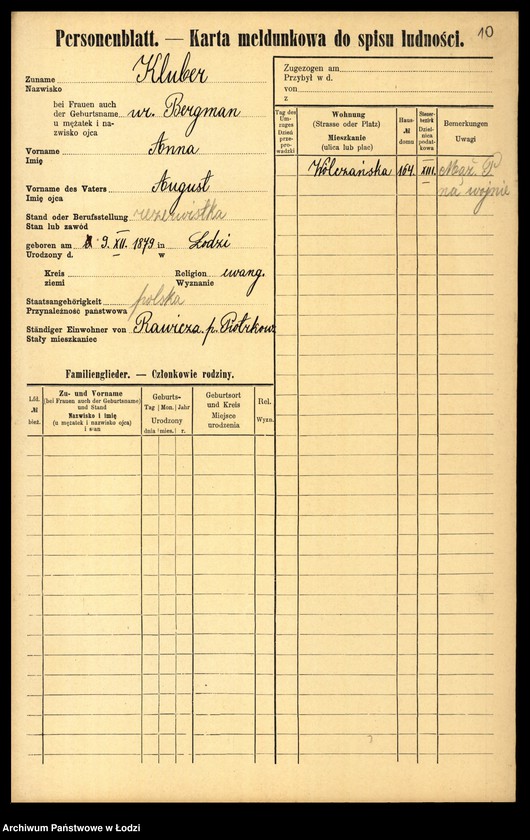 10
Personenblatt. — Karta meldunkowa do spisu ludności.
Zuname Kluber
Nazwisko
bei Frauen auch
der Geburtsname wr. Bergman
u mężatek i na-
zwisko ojca
Vorname Anna
Imię
Vorname des Vaters August
Imię ojca
Stand oder Berufsstellung rezerwistka
Stan lub zawód
geboren am 9. XII. 1879 in Łodzi
Urodzony d. w
Kreis Religion ewang.
ziemi Wyznanie
Staatsangehörigkeit polska
Przynależność państwowa
Ständiger Einwohner von Rawicza p. Piotrkow
Stały mieszkaniec
Familienglieder. — Członkowie rodziny.
Lfd.
№
bież.
Zu- und Vorname
(bei Frauen auch der Geburtsname)
und Stand
Nazwisko i imię
(u mężatek i nazwisko ojca)
i stan
Geburts-
Tag Mon. Jahr
Urodzony
dnia mies. r.
Geburtsort
und Kreis
Miejsce
urodzenia
Rel.
Wyzn.
Zugezogen am
Przybył w d.
von
z
Tag des
Um-
zuges
Dzień
prze-
prowa-
dzki
Wohnung
(Strasse oder Platz)
Mieszkanie
(ulica lub plac)
Haus-
№
domu
Steuer-
bezirk
Dziel-
nica
podat-
kowa
Bemerkungen
Uwagi
Wólczańska 164 XIII. Mąż P
na wojnie
Archiwum Państwowe w Łodzi